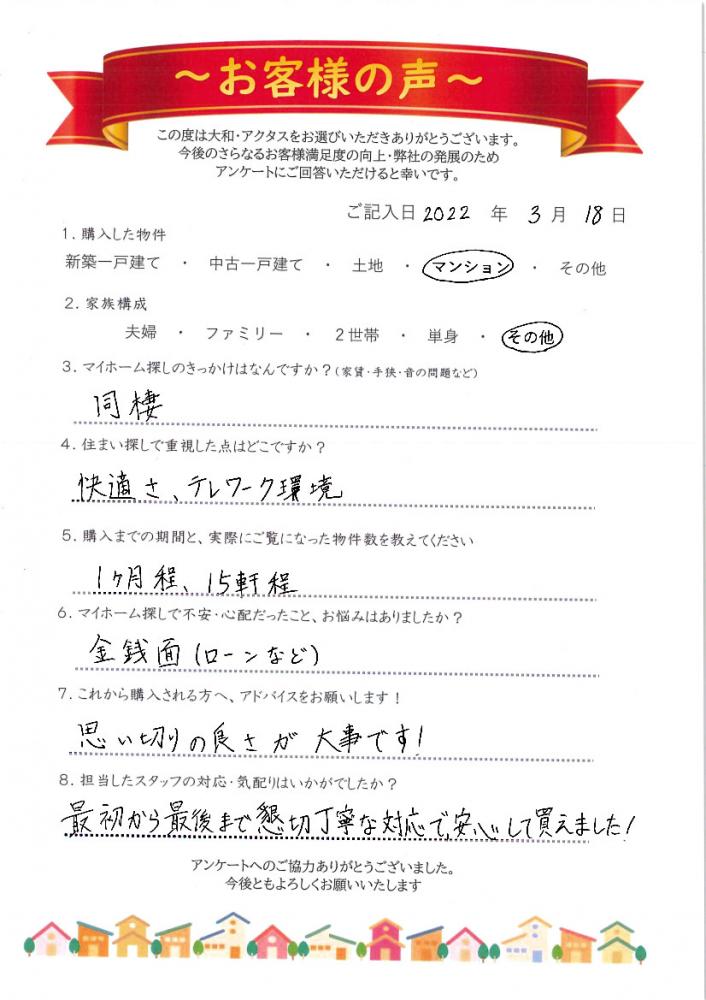 ～お客様の声～
この度は大和・アクタスをお選びいただきありがとうございます。
今後のさらなるお客様満足度の向上・弊社の発展のため
アンケートにご回答いただけると幸いです。
ご記入日 2022 年 3 月 18 日
1．購入した物件
新築一戸建て ・ 中古一戸建て ・ 土地 ・ マンション ・ その他
2．家族構成
夫婦 ・ ファミリー ・ 2世帯 ・ 単身 ・ その他
3．マイホーム探しのきっかけはなんですか？（家賃・手狭・音の問題など）
同棲
4．住まい探しで重視した点はどこですか？
快適さ、テレワーク環境
5．購入までの期間と、実際にご覧になった物件数を教えてください
1ヶ月程、15軒程
6．マイホーム探しで不安・心配だったこと、お悩みはありましたか？
金銭面（ローンなど）
7．これから購入される方へ、アドバイスをお願いします！
思い切りの良さが大事です！
8．担当したスタッフの対応・気配りはいかがでしたか？
最初から最後まで懇切丁寧な対応で、安心して買えました！
アンケートへのご協力ありがとうございました。
今後ともよろしくお願いいたします